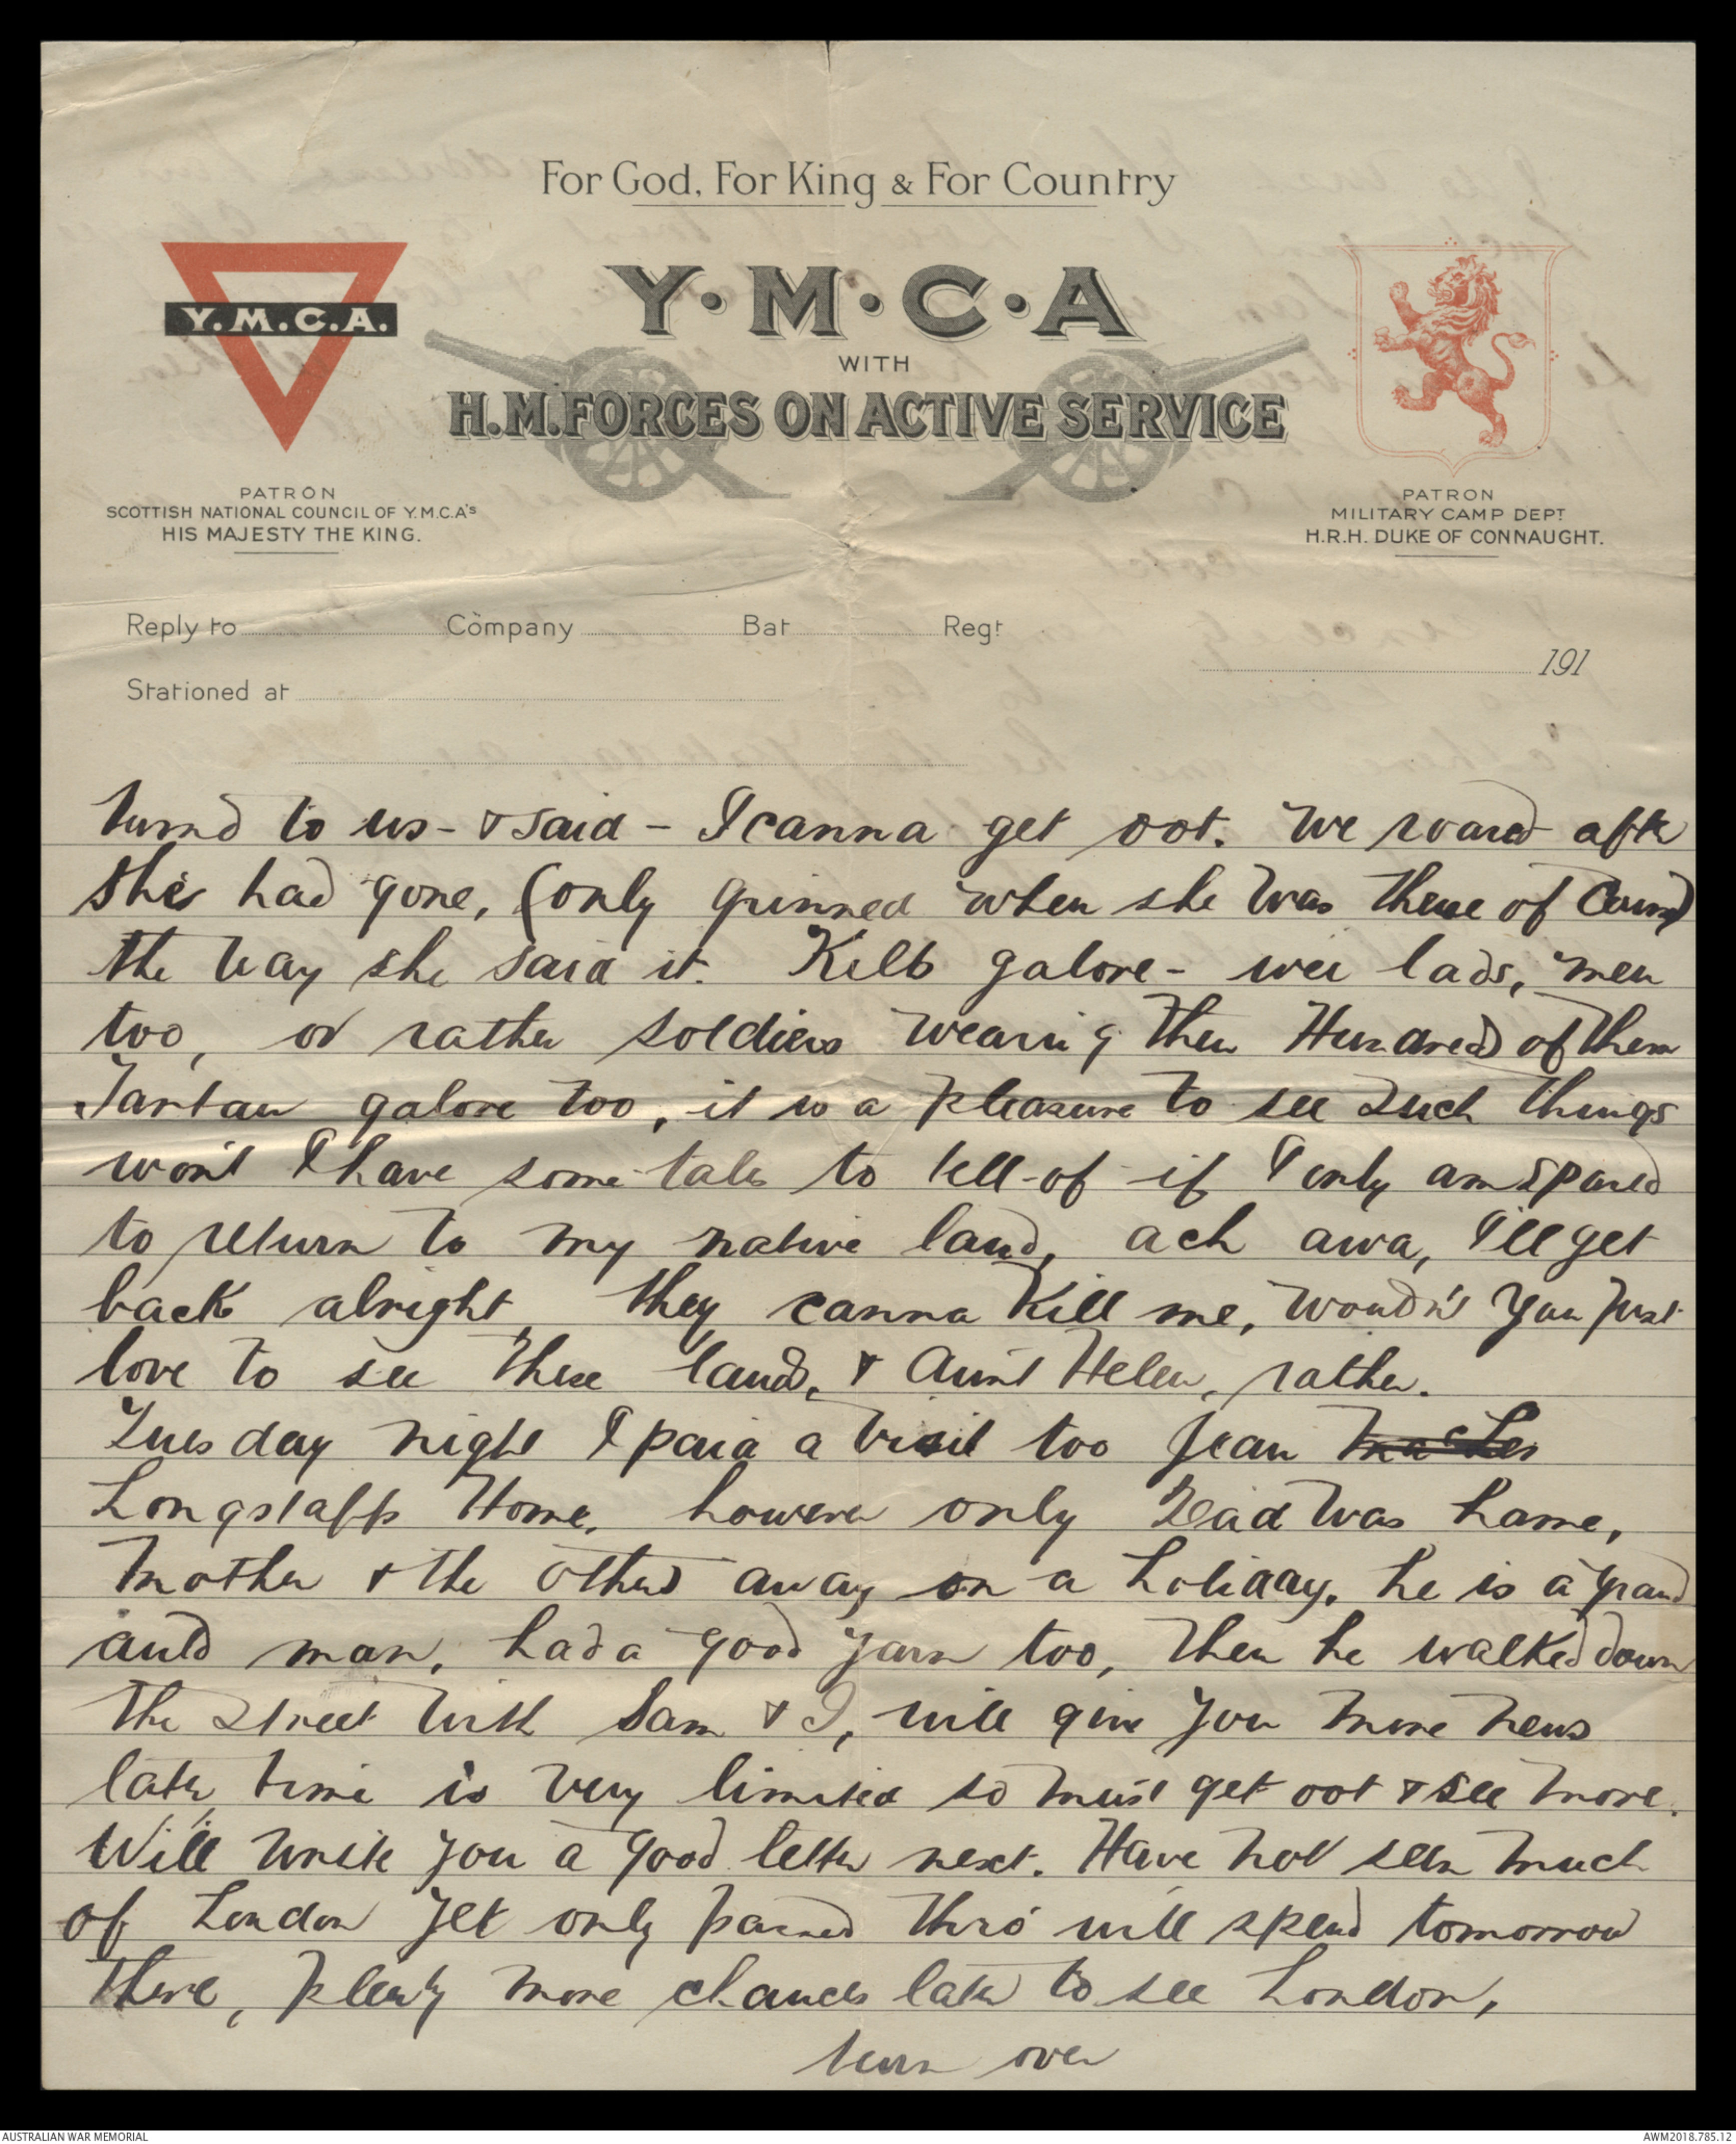 For God, For King & For Country
Y.M.C.A.
Y·M·C·A
WITH
H.M.FORCES ON ACTIVE SERVICE
PATRON
SCOTTISH NATIONAL COUNCIL OF Y.M.C.A's
HIS MAJESTY THE KING.
PATRON
MILITARY CAMP DEPT
H.R.H. DUKE OF CONNAUGHT.
Reply to Company Bat Regt
191
Stationed at
turnd to us - & said - I canna get oot. We roared after
she had gone, (only grinned when she was there of course)
the way she said it. Kilts galore - wee lads, men
too, or rather soldiers wearing them Hundreds of them
Tartan galore too, it is a pleasure to see such things
won't I have some tales to tell of if I only am spared
to return to my native land, ach awa, I'll get
back alright they canna kill me, woudn't you just
love to see these lands, & Aunt Helen, rather.
Tuesday night I paid a visit too Jean
Longstaffs Home, however only Dad was hame,
mother & the others away on a holiday, he is a grand
auld man, had a good yarn too, then he walked down
the street with Sam & I, will give you more news
later time is very limited so must get oot & see more.
Will write you a good letter next. Have not seen much
of London yet only passed thro' will spend tomorrow
there, plenty more chances later to see London,
turn over
AUSTRALIAN WAR MEMORIAL
AWM2018.785.12